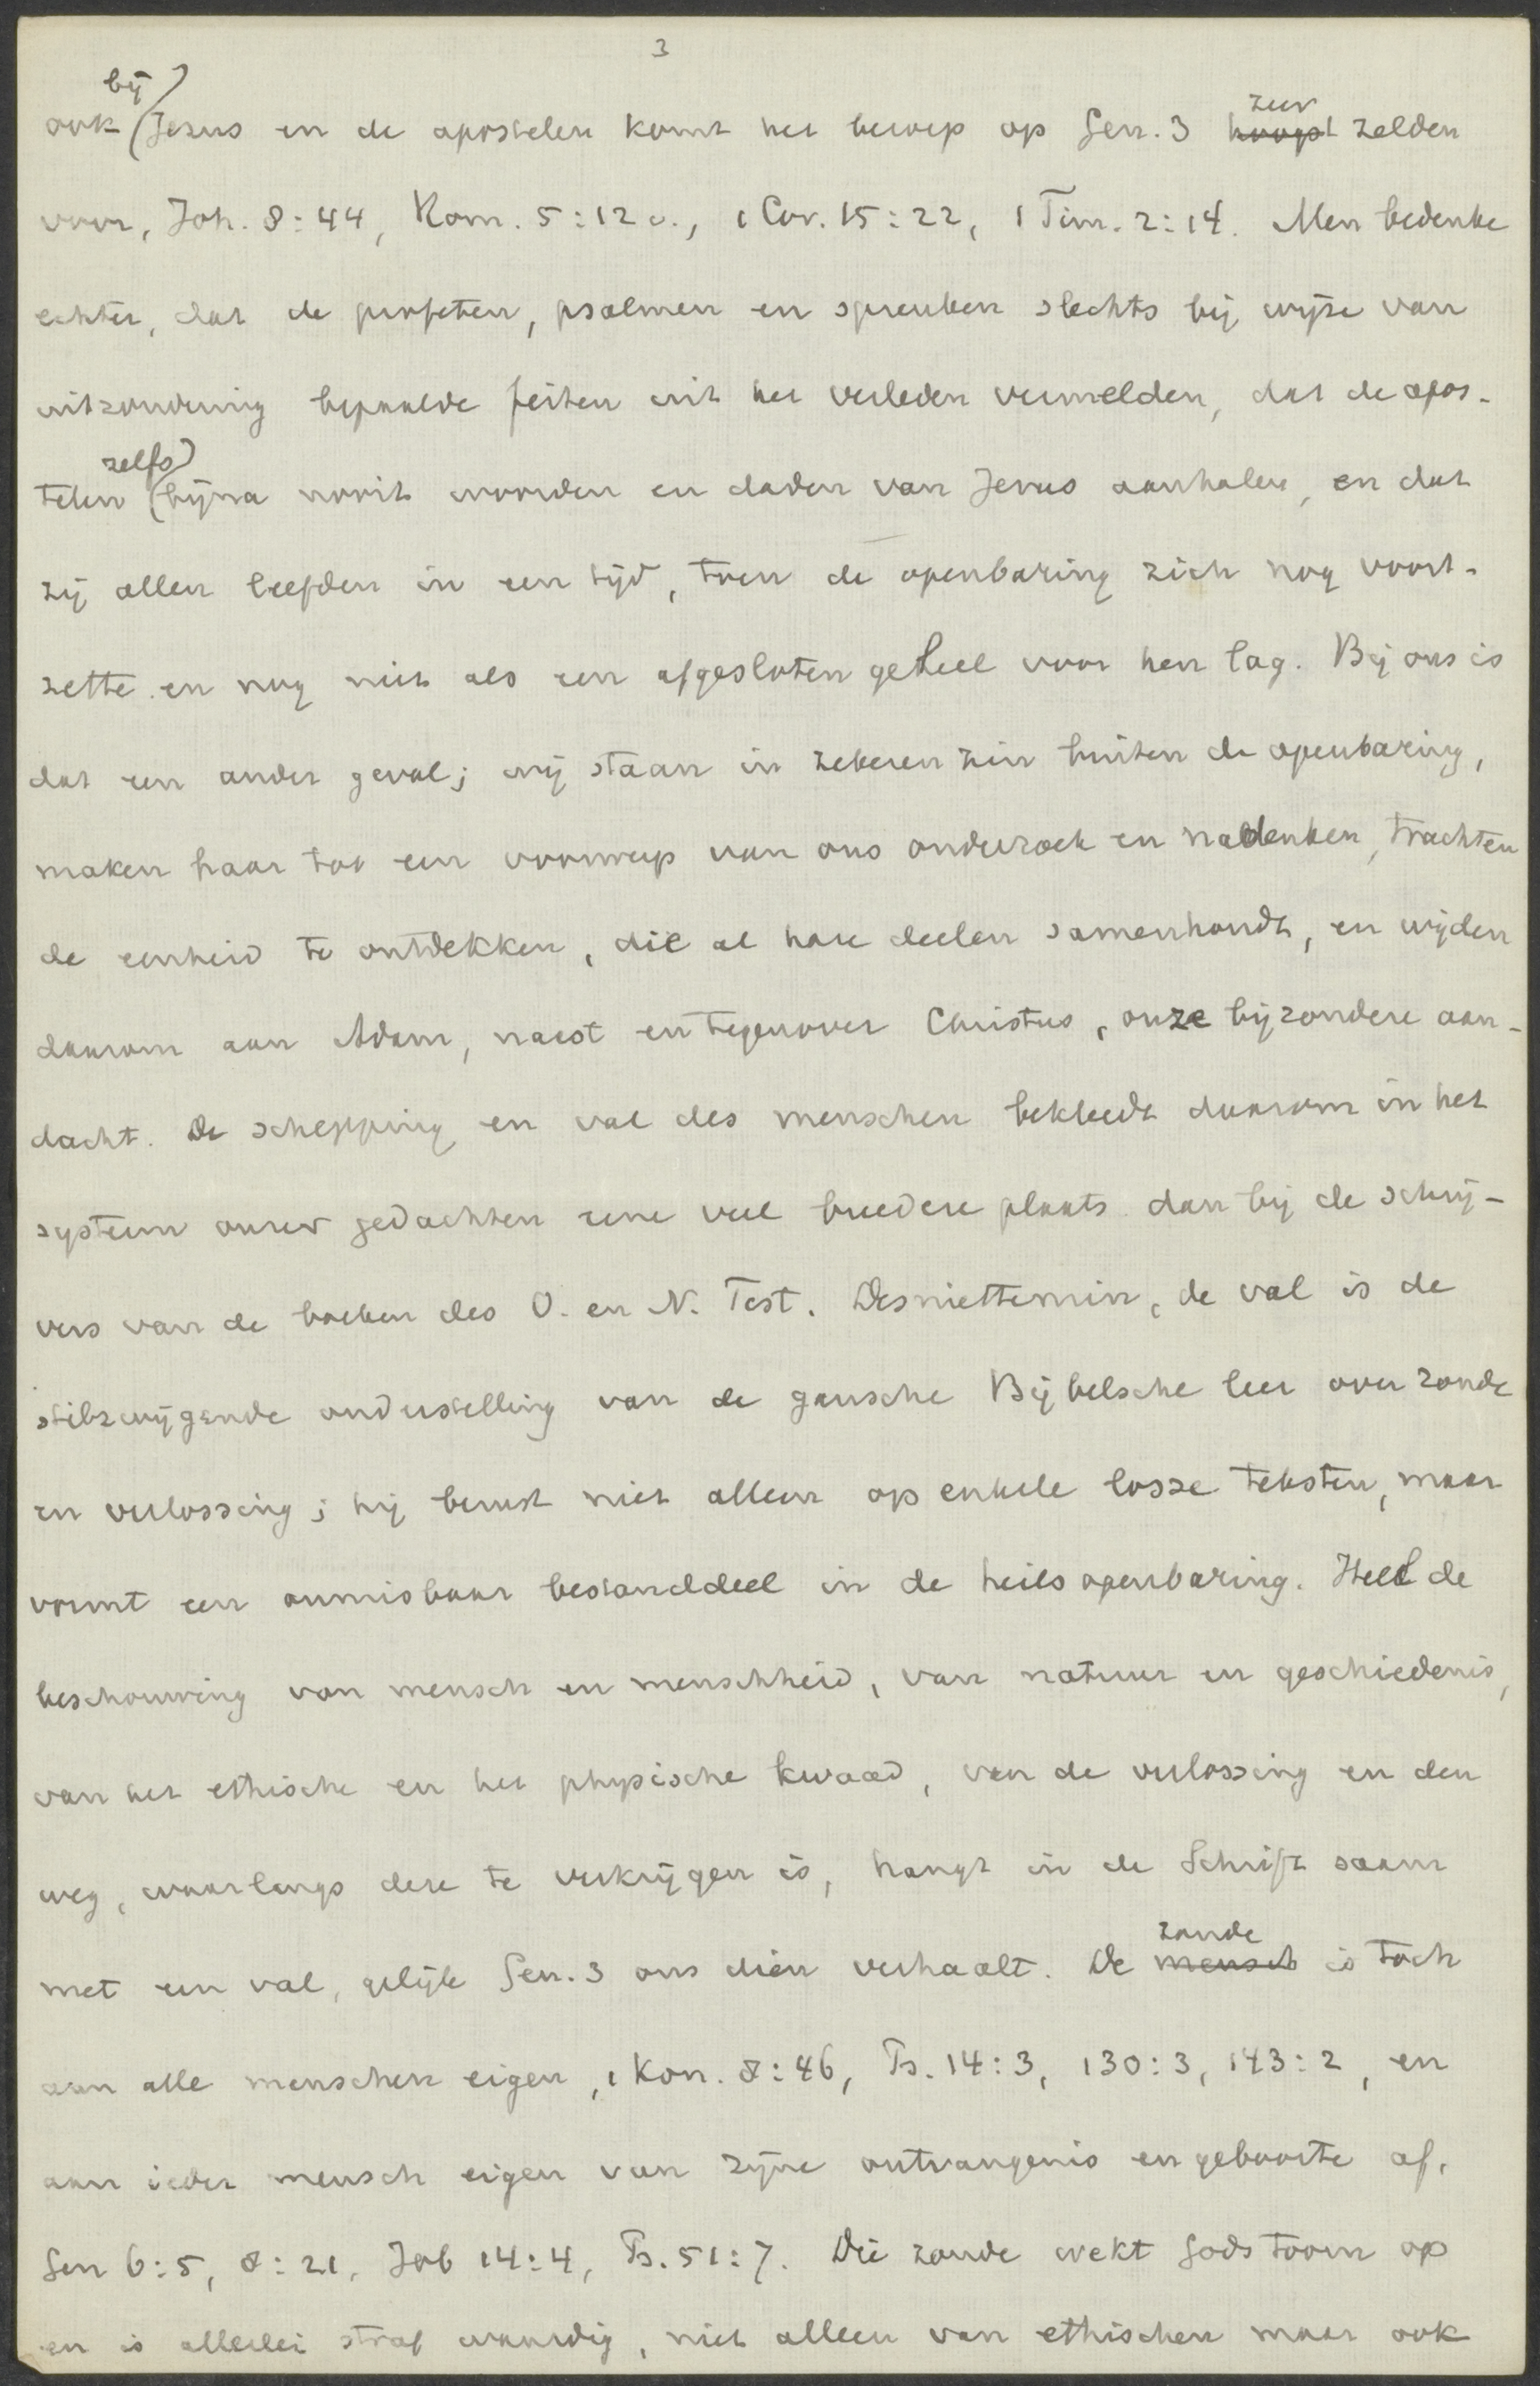 3
bij
ook (Jezus en de apostelen komt het beroep op Gen. 3 hoogst zeer zelden
voor, Joh. 8:44, Rom. 5:12v., 1 Cor. 15:22, 1 Tim. 2:14. Men bedenke
echter, dat de profeten, psalmen en spreuken slechts bij wijze van
uitzondering bepaalde feiten uit het verleden vermelden, dat de apos-
zelfs
telen (bijna nooit woorden en daden van Jezus aanhalen, en dat
zij allen leefden in een tijd, toen de openbaring zich nog voort-
zette en nog niet als een afgesloten geheel voor hen lag. Bij ons is
dat een ander geval; wij staan in zekeren zin buiten de openbaring,
maken haar tot een voorwerp van ons onderzoek en nadenken, trachten
de eenheid te ontdekken, die al hare deelen samenhoudt, en wijden
daarom aan Adam, naast en tegenover Christus, onze bijzondere aan-
dacht. De schepping en val des menschen bekleedt daarom in het
systeem onzer gedachten eene veel breedere plaats dan bij de schrij-
vers van de boeken des O. en N. Test. Desniettemin, de val is de
stilzwijgende onderstelling van de gansche Bijbelsche leer over zonde
en verlossing; hij berust niet alleen op enkele losse teksten, maar
vormt een onmisbaar bestanddeel in de heilsopenbaring. Heel de
beschouwing van mensch en menschheid, van natuur en geschiedenis,
van het ethische en het physische kwaad, van de verlossing en den
weg, waarlangs deze te verkrijgen is, hangt in de Schrift saam
met een val, gelijk Gen. 3 ons dien verhaalt. De mensch zonde is toch
aan alle menschen eigen, 1 Kon. 8:46, Ps. 14:3, 130:3, 143:2, en
aan ieder mensch eigen van zijne ontvangenis en geboorte af,
Gen 6:5, 8:21, Job 14:4, Ps. 51:7. Die zonde wekt Gods toorn op
en is allerlei straf waardig, niet alleen van ethischen maar ook